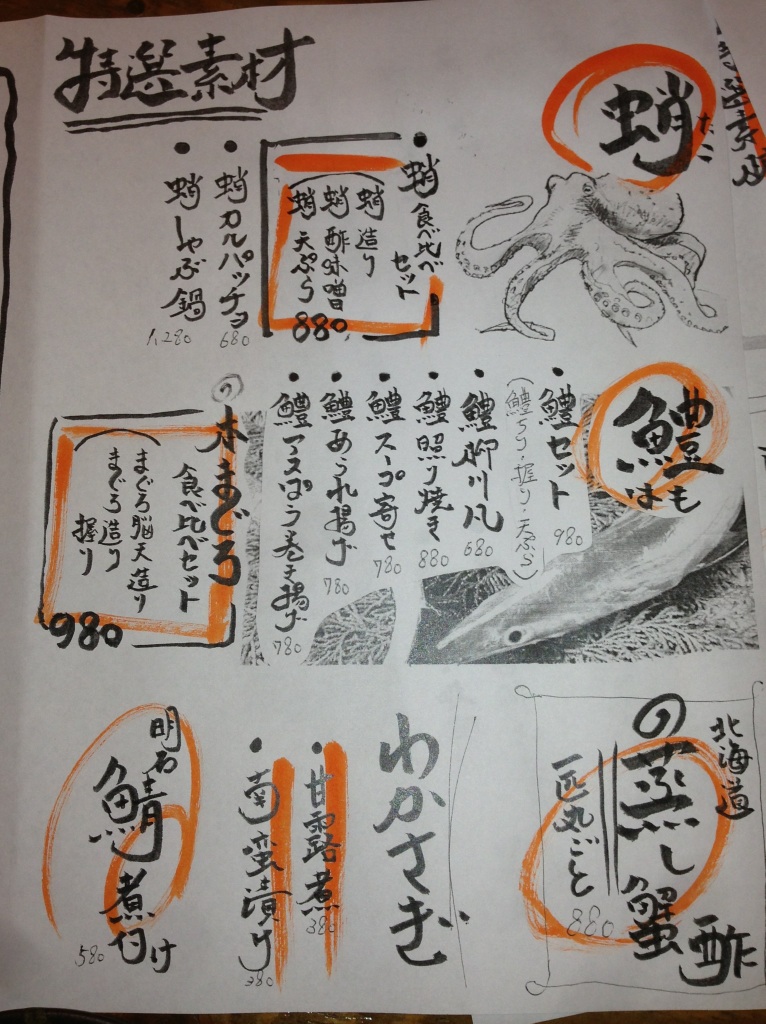 特選素材
蛸
たこ
・蛸食べ比べ
セット
蛸造り
蛸酢味噌
蛸天ぷら
880
・蛸カルパッチョ
680
・蛸しゃぶ鍋
1,280
鱧
はも
・鱧セット
(鱧ちり・握り・天ぷら)
980
・鱧柳川風
680
・鱧照り焼き
880
・鱧スープ寄せ
780
・鱧あられ揚げ
780
・鱧アスパラ巻き揚げ
780
の本まぐろ
食べ比べセット
まぐろ脳天造り
まぐろ造り
握り
980
北海道
の蒸し蟹酢
一匹丸ごと
880
わかさぎ
・甘露煮
380
・南蛮漬け
380
明石
鯖煮付け
580
特選素材